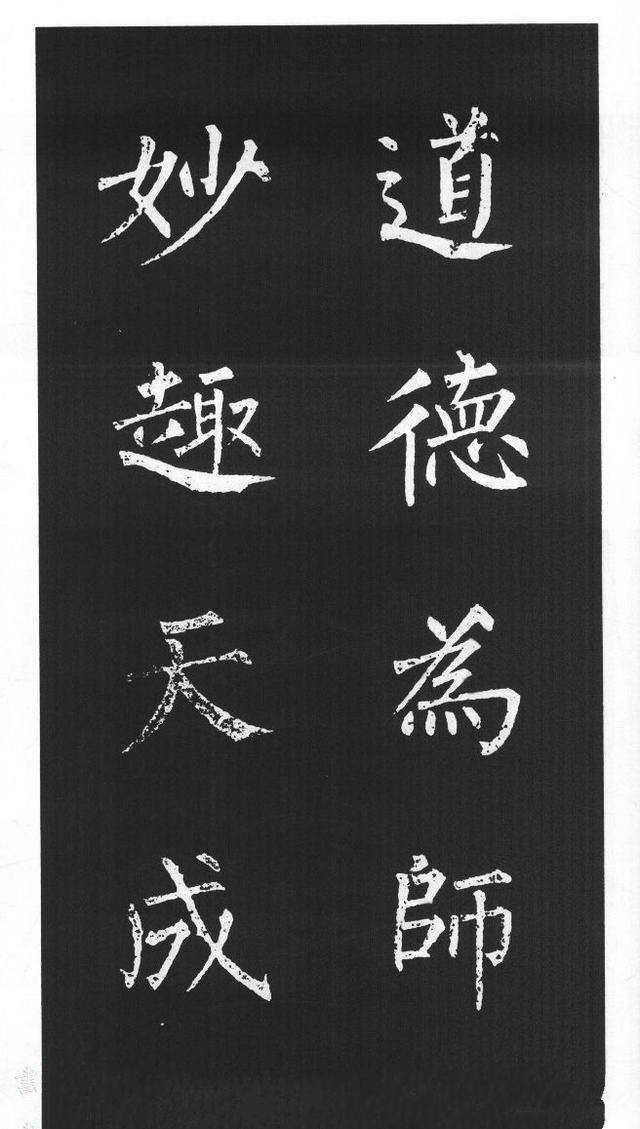 道德為師
妙趣天成